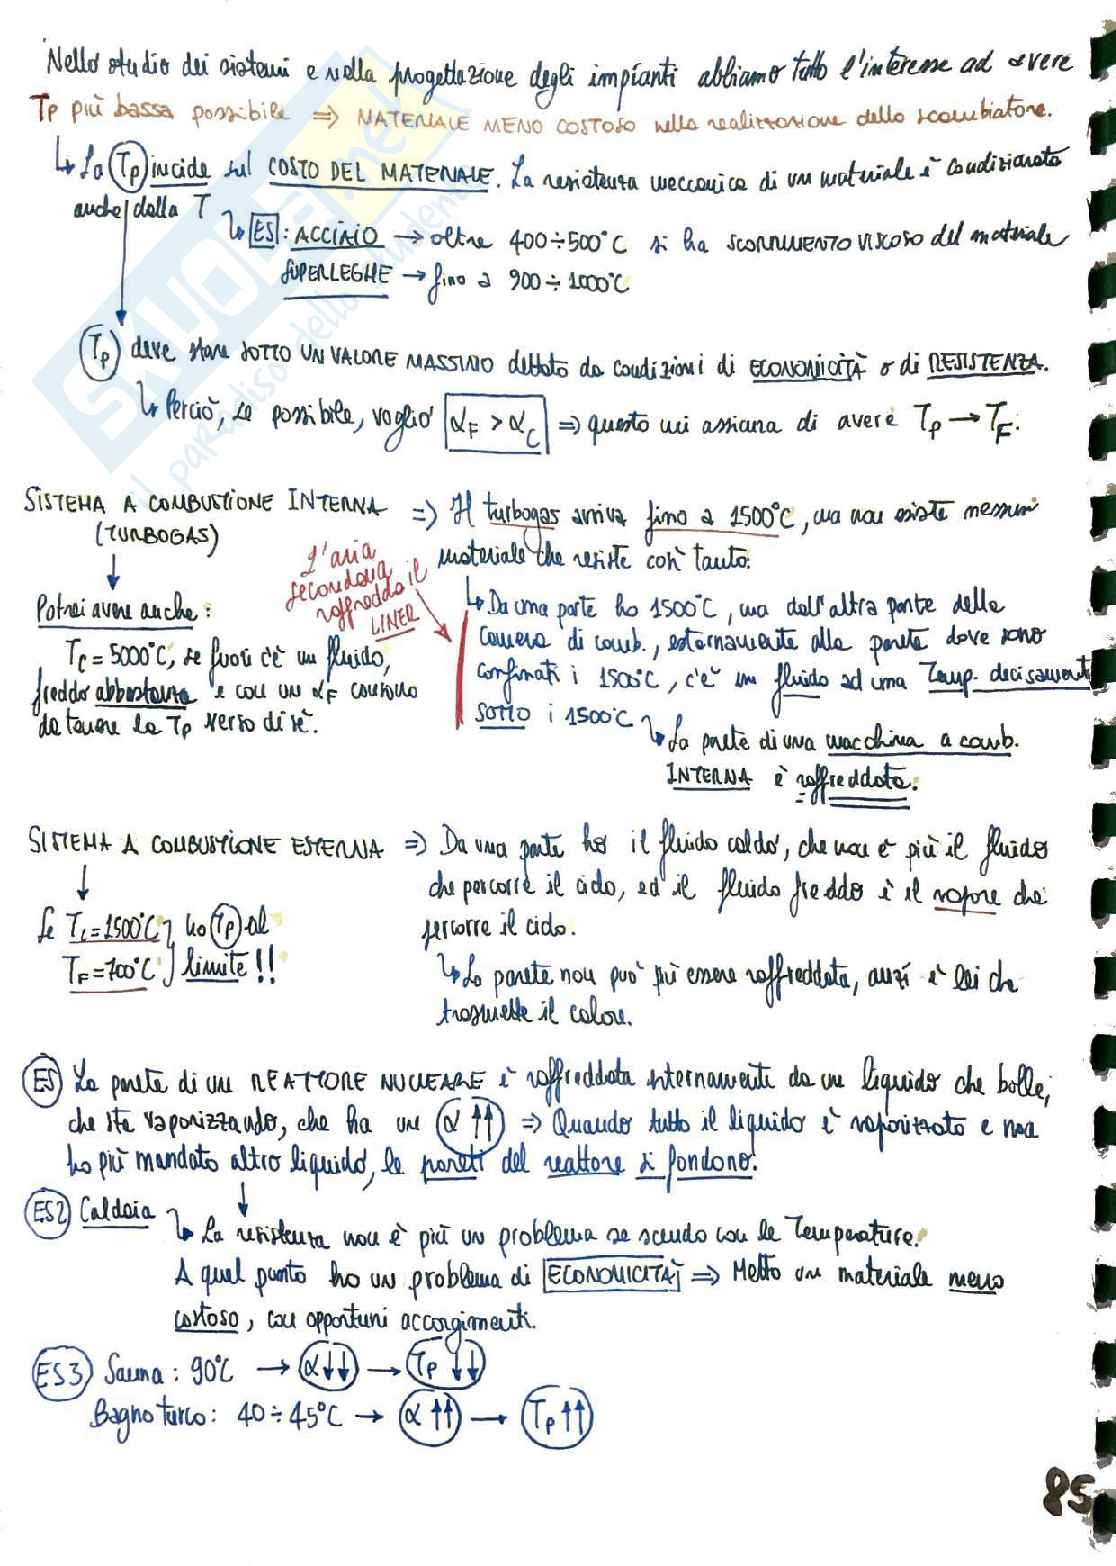 Nello studio dei sistemi e nella progettazione degli impianti abbiamo tutto l'interesse ad avere
Tp più bassa possibile ⇒ MATERIALE MENO COSTOSO nella realizzazione dello scambiatore.
↳ La Tp incide sul COSTO DEL MATERIALE. La resistenza meccanica di un materiale è condizionata
anche dalla T
↳ ES: ACCIAIO → oltre 400÷500°C si ha SCORRIMENTO VISCOSO del materiale
SUPERLEGHE → fino a 900÷1000°C
Tp deve stare SOTTO UN VALORE MASSIMO dettato da condizioni di ECONOMICITÀ o di RESISTENZA.
↳ Perciò, se possibile, voglio αF > αC ⇒ questo mi assicura di avere Tp → TF.
SISTEMA A COMBUSTIONE INTERNA ⇒ Il turbogas arriva fino a 1500°C, ma non esiste nessun
(TURBOGAS)
materiale che resiste così tanto.
L'aria
secondaria
raffredda il
LINER
↳ Da una parte ho 1500°C, ma dall'altra parte della
camera di comb., esternamente alla parete dove sono
confinati i 1500°C, c'è un fluido ad una Temp. decisament
SOTTO i 1500°C
↳ La parete di una macchina a comb.
INTERNA è raffreddata.
Potrei avere anche:
TC = 5000°C, se fuori c'è un fluido,
freddo abbastanza e con un αF
da tenere la Tp verso di sè.
SISTEMA A COMBUSTIONE ESTERNA ⇒ Da una parte ho il fluido caldo, che non è più il fluido
che percorre il ciclo, ed il fluido freddo è il vapore che
percorre il ciclo.
↳ La parete non può più essere raffreddata, anzi è lei che
trasmette il calore.
Se TC=1500°C } ho Tp al
TF=700°C } limite!!
ES La parete di un REATTORE NUCLEARE è raffreddata internamente da un liquido che bolle,
che sta vaporizzando, che ha un α↑↑ ⇒ Quando tutto il liquido è vaporizzato e non
ho più mandato altro liquido, le pareti del reattore si fondono.
ES2 Caldaia
↳ La resistenza non è più un problema se scendo con le Temperature.
A quel punto ho un problema di ECONOMICITÀ ⇒ Metto un materiale meno
costoso, con opportuni accorgimenti.
ES3 Sauna: 90°C → α↓↓ → Tp↓↓
Bagno turco: 40÷45°C → α↑↑ → Tp↑↑
85
SKUOLA.net
il paradiso dello studente